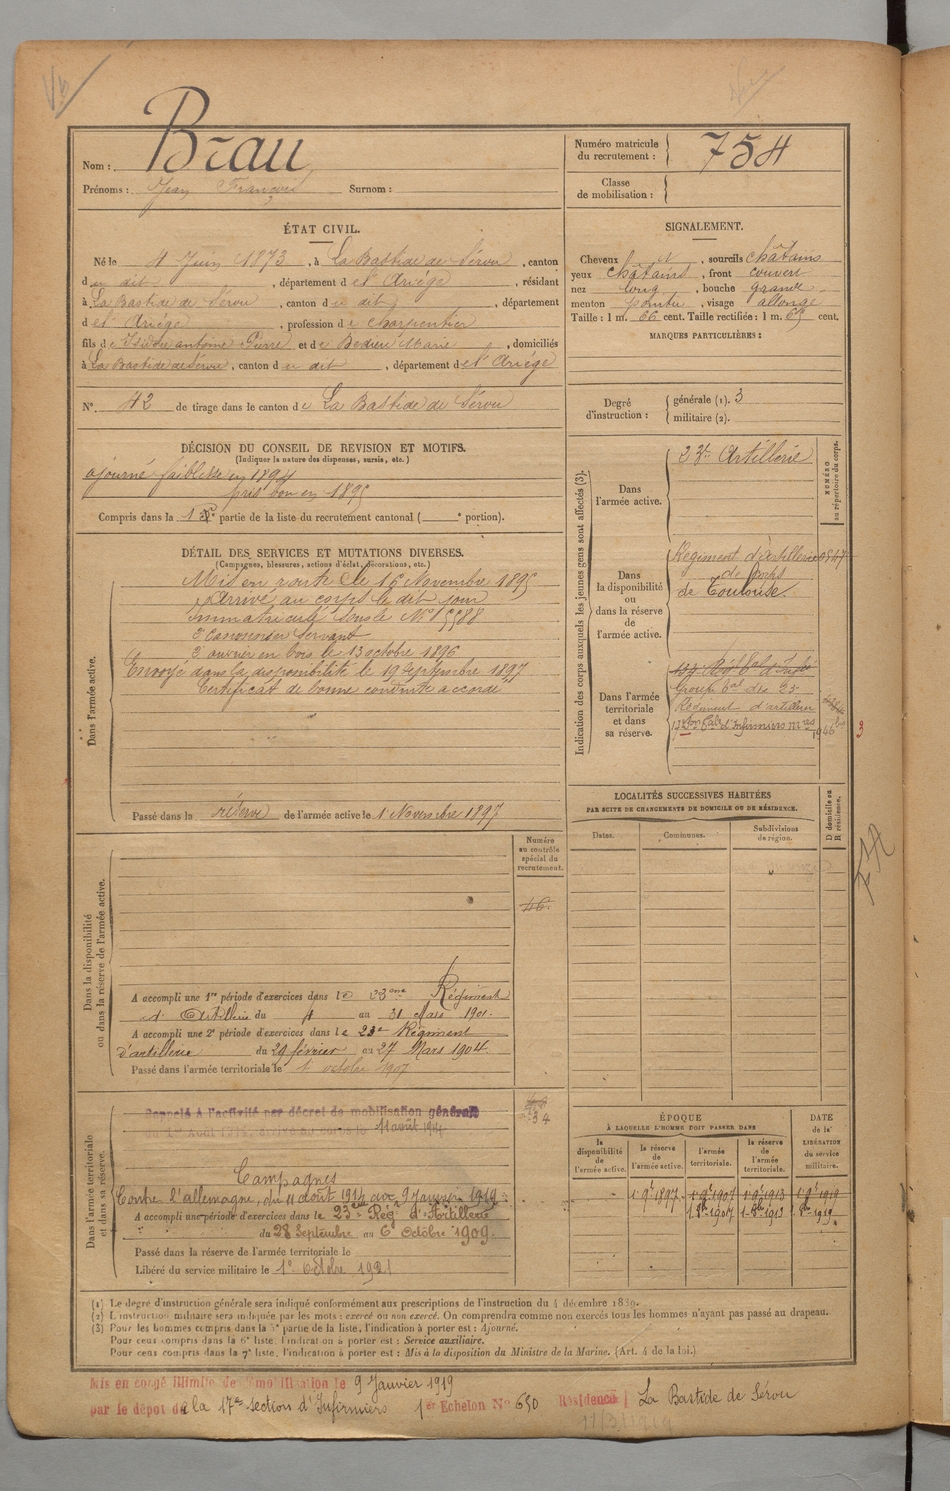 Nom : Brau
Prénoms : Jean François Surnom :
Numéro matricule du recrutement : 754
Classe de mobilisation :
ÉTAT CIVIL.
Né le 4 Juin 1873, à La Bastide de Sérou, canton
du dit, département de l'Ariège, résidant
à La Bastide de Sérou, canton du dit, département
de l'Ariège, profession de charpentier
fils de Isidore antoine Pierre et de Bedieu Marie, domiciliés
à La Bastide de Sérou, canton du dit, département de l'Ariège
N° 42 de tirage dans le canton de La Bastide de Sérou
SIGNALEMENT.
Cheveux et, sourcils châtains
yeux châtains, front couvert
nez long, bouche grande
menton pointu, visage allongé
Taille : 1 m. 66 cent. Taille rectifiée : 1 m. 69 cent.
MARQUES PARTICULIÈRES :
Degré d'instruction : générale (1). 3
militaire (2).
DÉCISION DU CONSEIL DE REVISION ET MOTIFS.
(Indiquer la nature des dispenses, sursis, etc.)
ajourné faiblesse en 1894
pris bon en 1895
Compris dans la 1re partie de la liste du recrutement cantonal ( e portion).
DÉTAIL DES SERVICES ET MUTATIONS DIVERSES.
(Campagnes, blessures, actions d'éclat, décorations, etc.)
Dans l'armée active.
Mis en route le 16 Novembre 1895
Arrivé au corps le dit jour
Immatriculé sous le N°
2e Canonnier Servant
2e ouvrier en bois le 13 octobre 1896
Envoyé dans la disponibilité le 19 Septembre 1897
Certificat de bonne conduite accordé
Passé dans la réserve de l'armée active le 1 Novembre 1897
Indication des corps auxquels les jeunes gens sont affectés (3).
NUMÉRO au répertoire du corps.
Dans l'armée active.
23e Artillerie
Dans la disponibilité ou dans la réserve de l'armée active.
Régiment d'artillerie
de Corps
de Toulouse.
Dans l'armée territoriale et dans sa réserve.
Groupe tal du 23e
Régiment d'artillerie
17e Son tale d'Infirmiers Mres
3
LOCALITÉS SUCCESSIVES HABITÉES
PAR SUITE DE CHANGEMENTS DE DOMICILE OU DE RÉSIDENCE.
Dates. Communes. Subdivisions de région. D domicile ou R résidence.
Dans la disponibilité ou dans la réserve de l'armée active.
Numéro au contrôle spécial du recrutement.
46
A accompli une 1re période d'exercices dans le 23ème Régiment
d'Artillerie du 4 au 31 Mars 1901.
A accompli une 2e période d'exercices dans le 23e Régiment
d'artillerie du 29 février au 27 Mars 1904.
Passé dans l'armée territoriale le 1 octobre 1907
Dans l'armée territoriale et dans sa réserve.
Rappelé à l'activité par décret de mobilisation générale
du 1er Août 1914, arrivé au corps le 11 août 1914
34
Campagnes
Contre l'allemagne, du 11 août 1914 au 9 Janvier 1919
A accompli une période d'exercices dans le 23ème Régt d'Artillerie
du 28 Septembre au 6 Octobre 1909.
Passé dans la réserve de l'armée territoriale le
Libéré du service militaire le 1er octobre 1921
ÉPOQUE
À LAQUELLE L'HOMME DOIT PASSER DANS
la disponibilité de l'armée active. la réserve de l'armée active. l'armée territoriale. la réserve de l'armée territoriale. DATE de la LIBÉRATION du service militaire.
1 9e 1897 1 9e 1907 1 9e 1913 1 9e 1919
1 8e 1907 1 8e 1913 1 8e 1919
(1) Le degré d'instruction générale sera indiqué conformément aux prescriptions de l'instruction du 4 décembre 1889.
(2) L'instruction militaire sera indiquée par les mots : exercé ou non exercé. On comprendra comme non exercés tous les hommes n'ayant pas passé au drapeau.
(3) Pour les hommes compris dans la 5e partie de la liste, l'indication à porter est : Ajourné.
Pour ceux compris dans la 6e liste, l'indication à porter est : Service auxiliaire.
Pour ceux compris dans la 7e liste, l'indication à porter est : Mis à la disposition du Ministre de la Marine. (Art. 4 de la loi.)
Mis en congé illimité de démobilisation le 9 Janvier 1919
par le dépot de la 17e section d'Infirmiers 1er Echelon N° 650 Résidence La Bastide de Sérou